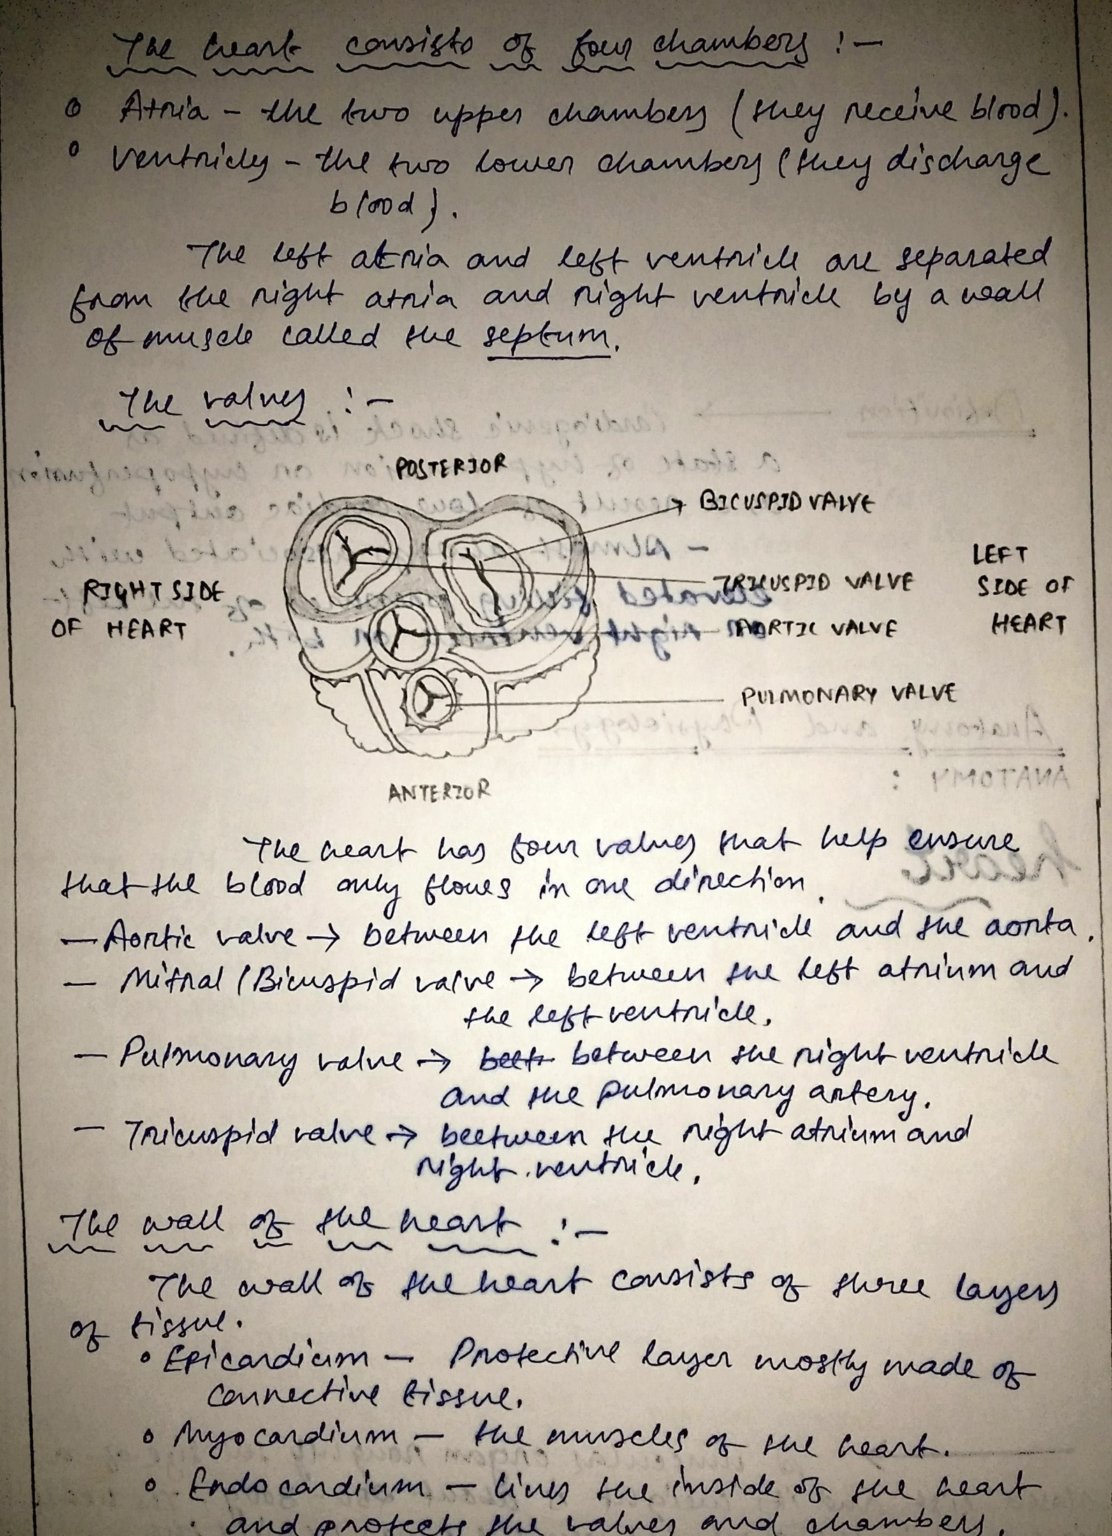 The heart consists of four chambers :-
o Atria - the two upper chambers (they receive blood).
o Ventricles - the two lower chambers (they discharge
blood).
The left atria and left ventricle are separated
from the right atria and right ventricle by a wall
of muscle called the septum.
The valves :-
POSTERIOR
BICUSPID VALVE
LEFT
SIDE OF
HEART
RIGHT SIDE
OF HEART
TRICUSPID VALVE
AORTIC VALVE
PULMONARY VALVE
ANTERIOR
The heart has four valves that help ensure
that the blood only flows in one direction.
- Aortic valve → between the left ventricle and the aorta.
- Mitral / Bicuspid valve → between the left atrium and
the left ventricle.
- Pulmonary valve → between the right ventricle
and the pulmonary artery.
- Tricuspid valve → beetween the right atrium and
right ventricle.
The wall of the heart :-
The wall of the heart consists of three layers
of tissue.
o Epicardium - Protective layer mostly made of
connective tissue.
o Myocardium - the muscles of the heart.
o Endocardium - lines the inside of the heart
and protects the valves and chambers.